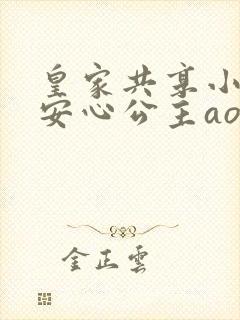 皇家共享小
安心公主ao
金正雲